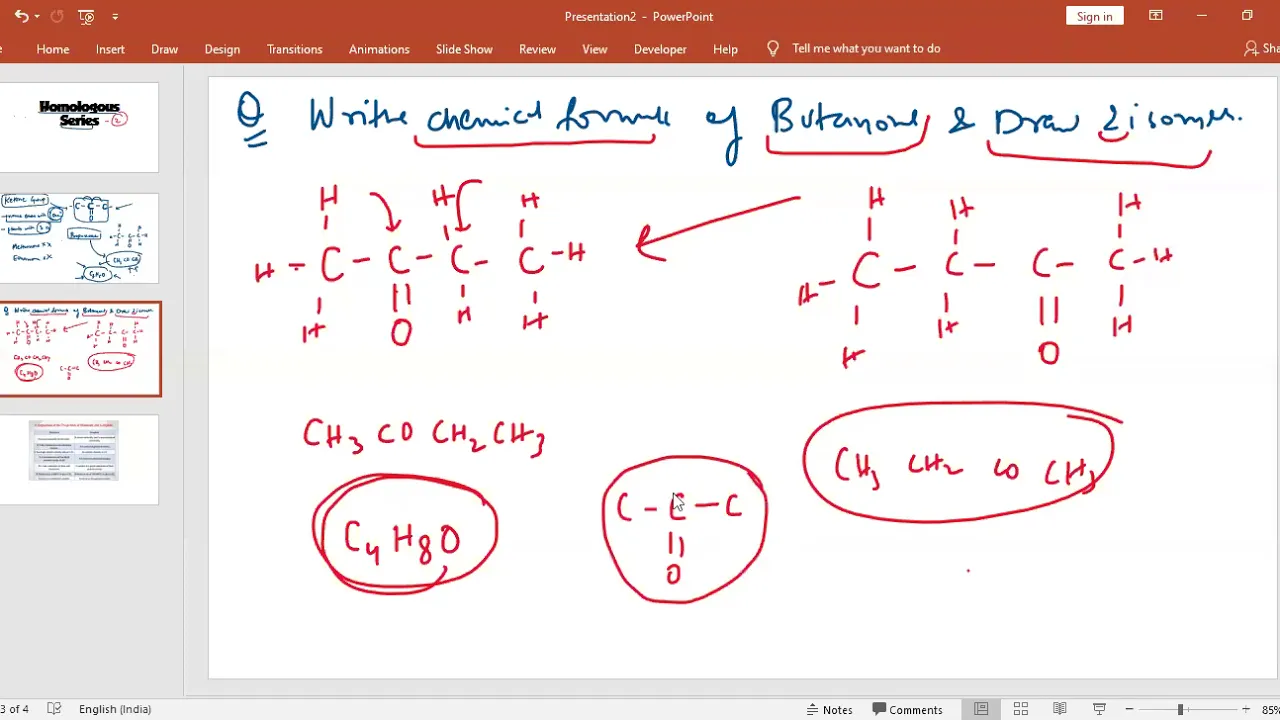 Presentation2 - PowerPoint
Sign in
Home Insert Draw Design Transitions Animations Slide Show Review View Developer Help Tell me what you want to do Sha
Homologous
Series - 2
Q Write chemical formula of Butanone & Draw 2 isomer.
H H H
H - C - C - C - C - H
H || H H
O
H H H
H - C - C - C - C - H
H H || H
O
CH3 CO CH2 CH3
CH3 CH2 CO CH3
C4H8O
C - C - C
||
O
3 of 4 English (India) Notes Comments 85%